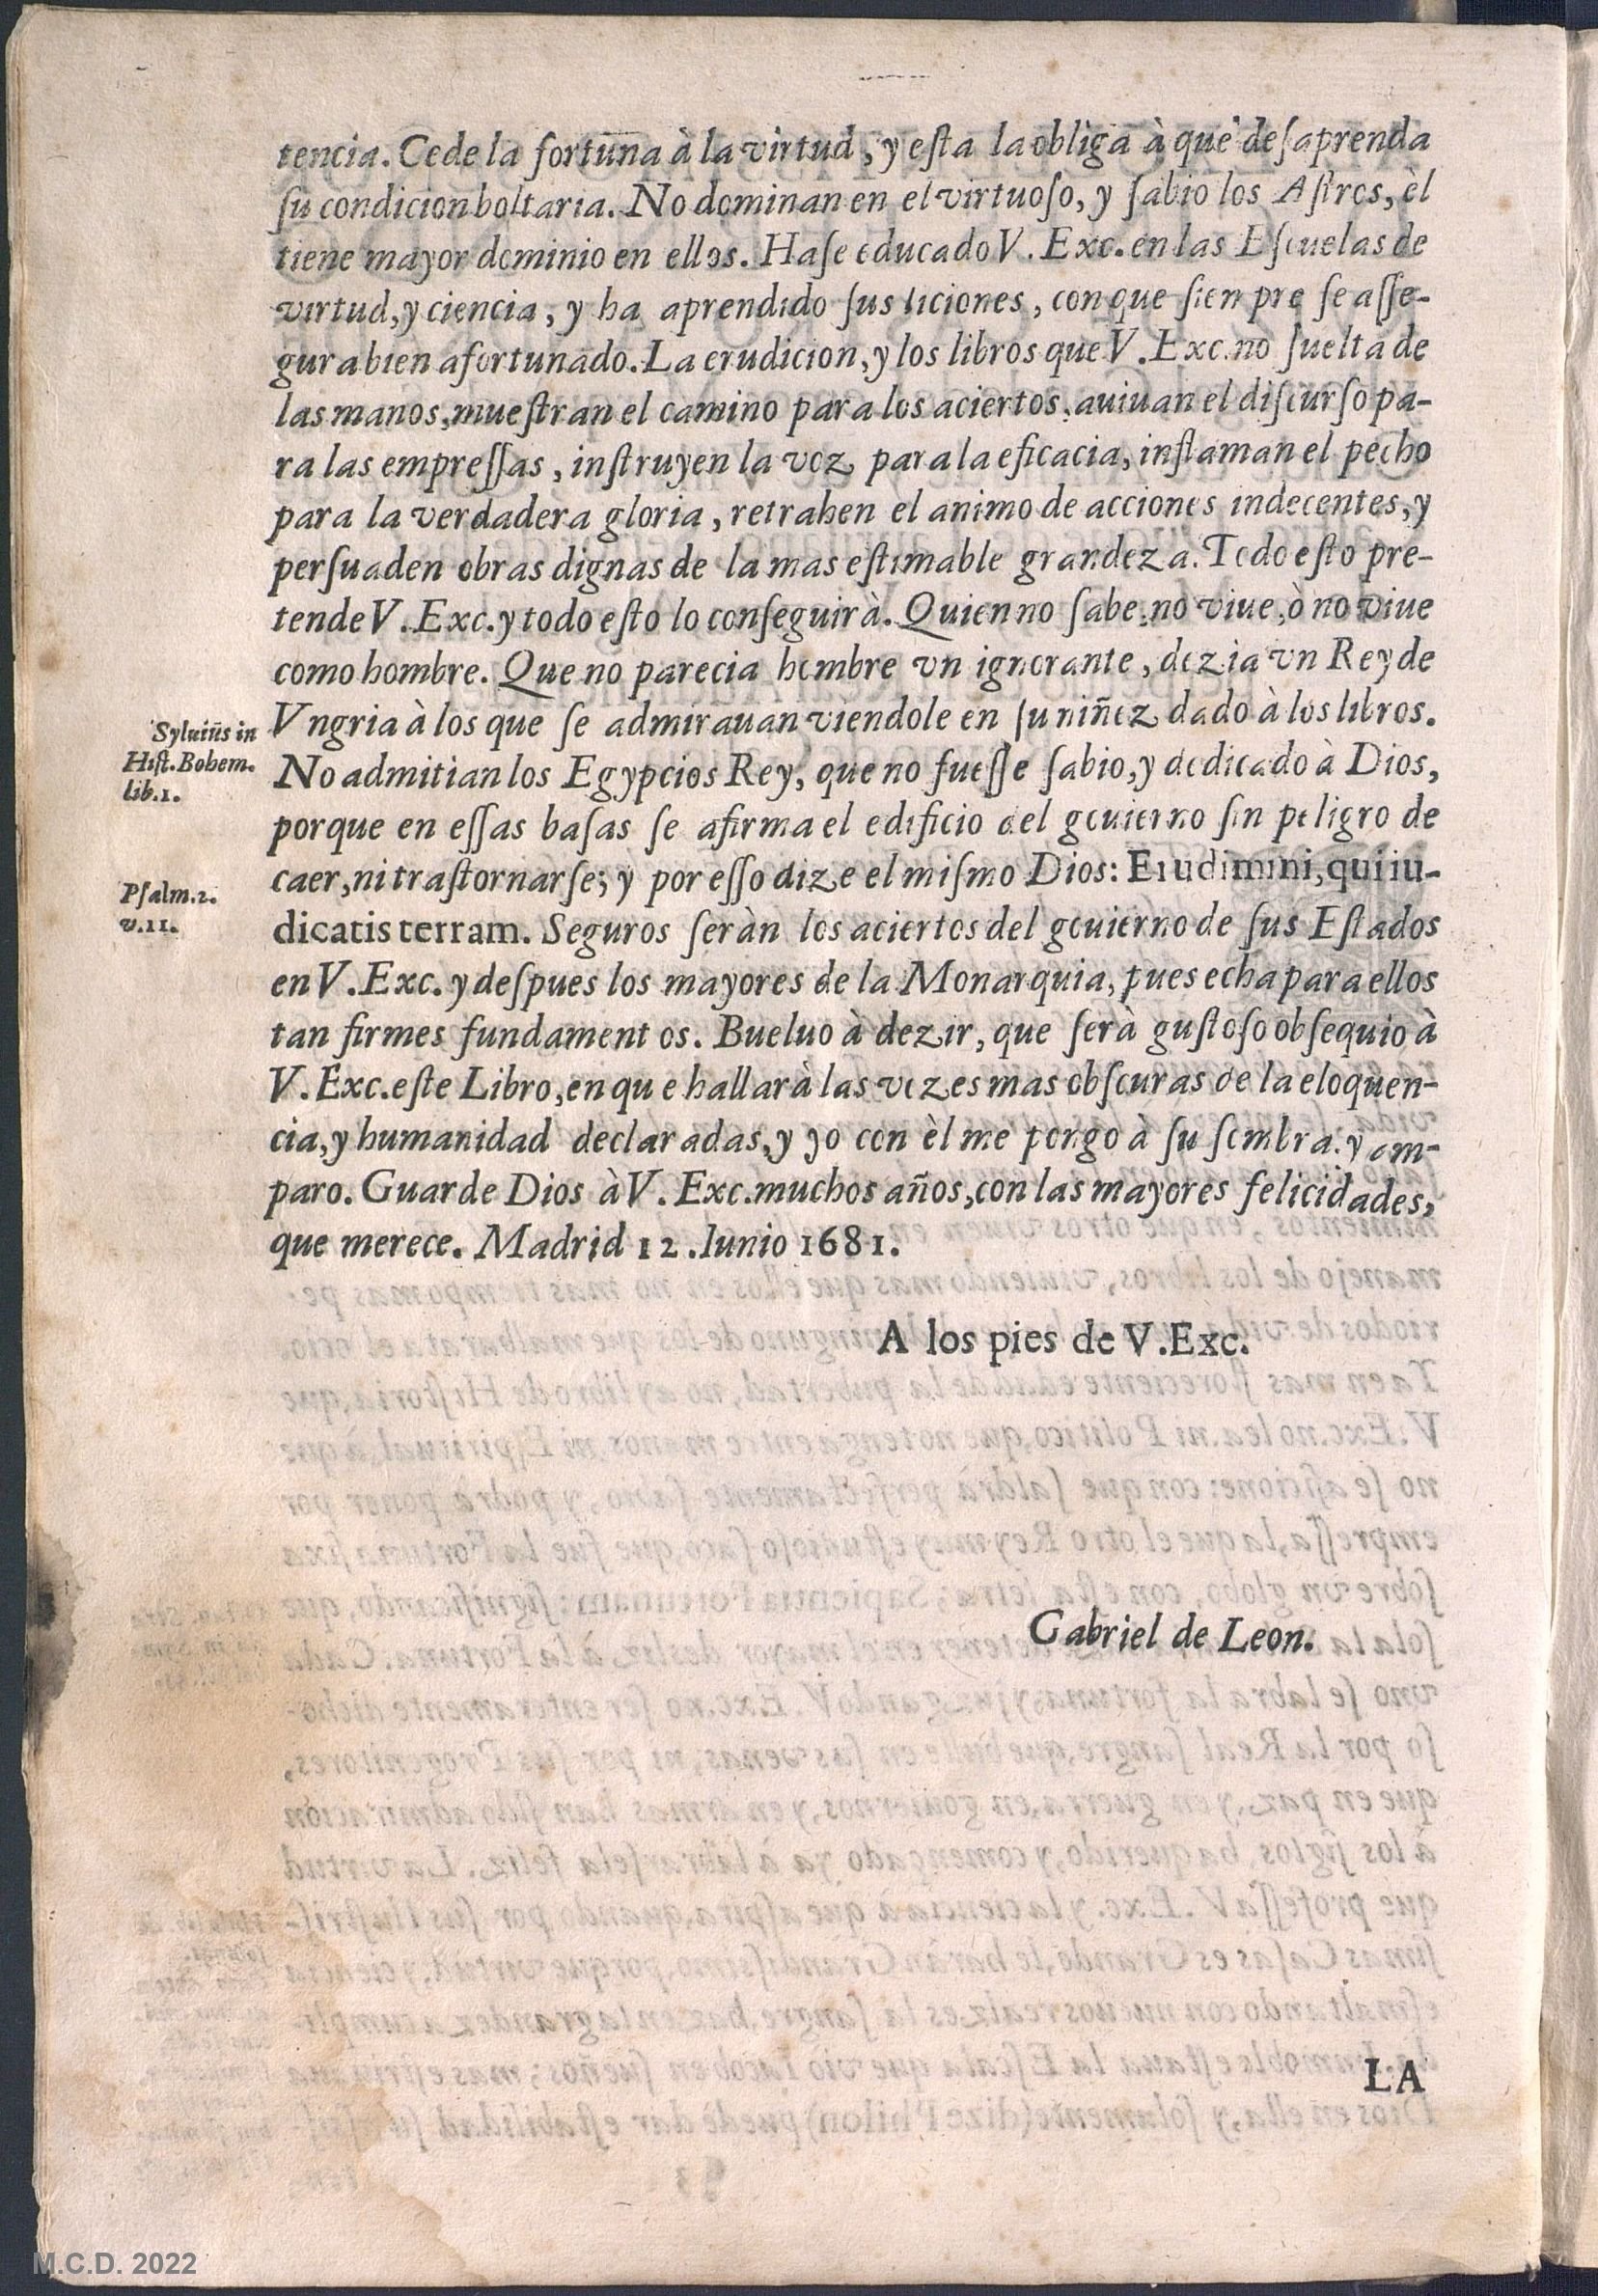 tencia. Cede la fortuna à la virtud, y eſta la obliga à que deſaprenda
ſu condicion boltaria. No dominan en el virtuoſo, y ſabio los Aſtros, èl
tiene mayor dominio en ellos. Haſe educado V. Exc. en las Eſcuelas de
virtud, y ciencia, y ha aprendido ſus liciones, con que ſienpre ſe aſſe-
gura bien afortunado. La erudicion, y los libros que V. Exc. no ſuelta de
las manos, mueſtran el camino para los aciertos, auiuan el diſcurſo pa-
ra las empreſſas, inſtruyen la voz para la eficacia, inflaman el pecho
para la verdadera gloria, retrahen el animo de acciones indecentes, y
perſuaden obras dignas de la mas eſtimable grandeza. Todo eſto pre-
tende V. Exc. y todo eſto lo conſeguirà. Quien no ſabe, no viue, ò no viue
como hombre. Que no parecia hombre vn ignorante, dezia vn Rey de
Vngria à los que ſe admirauan viendole en ſu niñez dado à los libros.
Syluiũs in
Hiſt. Bohem.
lib. 1.
No admitian los Egypcios Rey, que no fueſſe ſabio, y dedicado à Dios,
porque en eſſas baſas ſe afirma el edificio del gouierno ſin peligro de
caer, ni traſtornarſe; y por eſſo dize el miſmo Dios: Erudimini, qui iu-
Pſalm. 2.
v. 11.
dicatis terram. Seguros ſeràn los aciertos del gouierno de ſus Eſtados
en V. Exc. y deſpues los mayores de la Monarquia, pues echa para ellos
tan firmes fundamentos. Bueluo à dezir, que ſerà guſtoſo obſequio à
V. Exc. eſte Libro, en que hallarà las vozes mas obſcuras de la eloquen-
cia, y humanidad declaradas, y yo con èl me pongo à ſu ſombra, y am-
paro. Guarde Dios à V. Exc. muchos años, con las mayores felicidades,
que merece. Madrid 12. Iunio 1681.
A los pies de V. Exc.
Gabriel de Leon.
LA
M.C.D. 2022